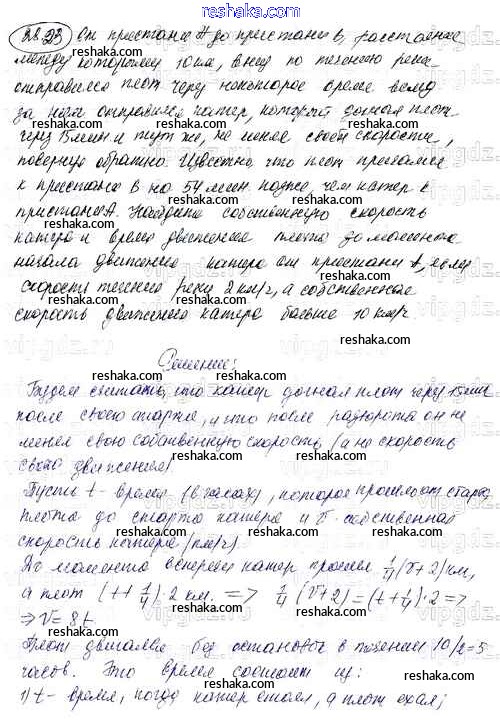 28.23 От пристани А до пристани В, расстояние
между которыми 10 км, вниз по течению реки
отправился плот через некоторое время вслед
за ним отправился катер, который догнал плот
через 15 мин и тут же, не меняя своей скорости,
повернул обратно. Известно что плот
к пристани В на 54 мин. позже, чем катер к
пристани А. Найдите собственную скорость
катера и время движения плота до момента
начала движения катера от пристани А, если
скорость течения реки 2 км/ч, а собственная
скорость движения катера больше 10 км/ч
Решение:
Будем считать, что катер догнал плот через 15 мин
после своего старта, и что после разворота он не
менял свою собственную скорость (а не скорость
своего движения)
Пусть t - время (в часах), которое прошло от старта
плота до старта катера и V - собственная
скорость катера (км/ч)
До момента встречи катер прошел 1/4 (V+2) км,
а плот (t + 1/4)·2 км. => 1/4 (V+2) = (t+1/4)·2 =>
=> V = 8t
Плот двигался без остановок в течении 10/2=5
часов. Это время состоит из:
1) t - время, когда катер стоял, а плот ехал;
reshaka.ru
vipgdz.com